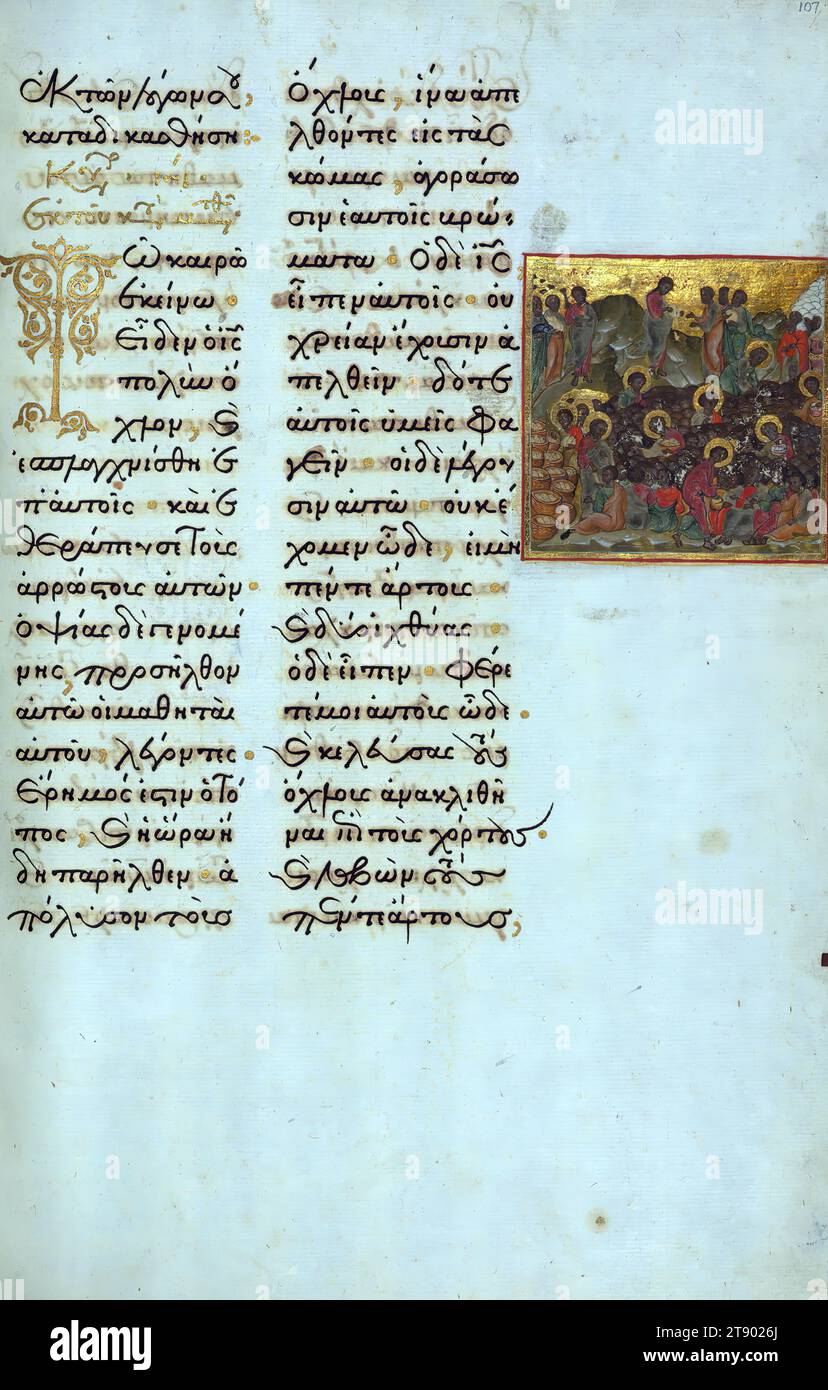 107
ἐκ τῶν λόγων σου,
καταδικασθήση:
Τῶ καιρῶ
ἐκείνω.
εἶδεν ὁ ις
πολὺν ὄ
χλον, ϗ
ἐσπλαγχνίσθη ἐ
π' αὐτοῖς· καὶ ἐ
θεράπευσε τοὺς
ἀρρώστους αὐτῶν·
ὀψίας δὲ γενομέ
νης, προσῆλθον
αὐτῶ οἱ μαθηταὶ
αὐτοῦ, λέγοντες·
ἔρημός ἐστιν ὁ τό
πος, ϗ ἡ ὥρα ἤ
δη παρῆλθεν· ἀ
πόλυσον τοὺς
ὄχλους, ἵνα ἀπε
λθόντες εἰς τὰς
κώμας, ἀγοράσω
σιν ἑαυτοῖς βρώ
ματα· ὁ δὲ ις
εἶπεν αὐτοῖς· οὐ
χρείαν ἔχουσιν ἀ
πελθεῖν· δότε
αὐτοῖς ὑμεῖς φα
γεῖν· οἱ δὲ λέγου
σιν αὐτῶ· οὐκ ἔ
χομεν ὧδε, εἰ μὴ
πέντε ἄρτους
ϗ δύο ἰχθύας·
ὁ δὲ εἶπεν· φέρε
τέ μοι αὐτοὺς ὧδε·
ϗ κελεύσας τοὺς
ὄχλους ἀνακλιθῆ
ναι ἐπὶ τοὺς χόρτους·
ϗ λαβὼν τοὺς
πέντε ἄρτους,
alamy
alamy
alamy
Image ID: 2T9026J
www.alamy.com